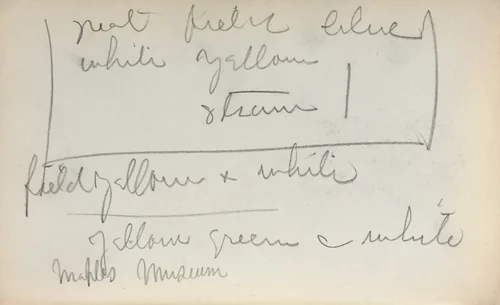 neat fields blue
white yellow
stram
field yellow & white
yellow green & white
Naples Museum